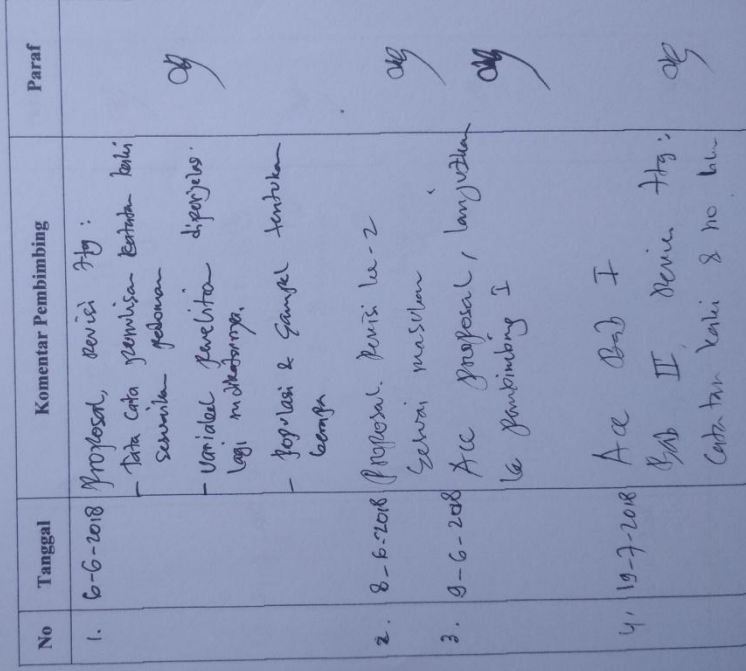 No Tanggal Komentar Pembimbing Paraf
1. 6-6-2018 Proposal, revisi ttg :
- Tata cara penulisan catatan kaki
sesuaikan pedoman
- Variabel penelitian diperjelas.
lagi indikatornya.
- Populasi & Sampel tentukan
berapa
2. 8-6-2018 Proposal. Revisi ke-2
Sesuai masukan
3. 9-6-2018 Acc proposal, lanjutkan
ke pembimbing I
4. 19-7-2018 Acc Bab I
Bab II revisi ttg :
Catatan kaki & no